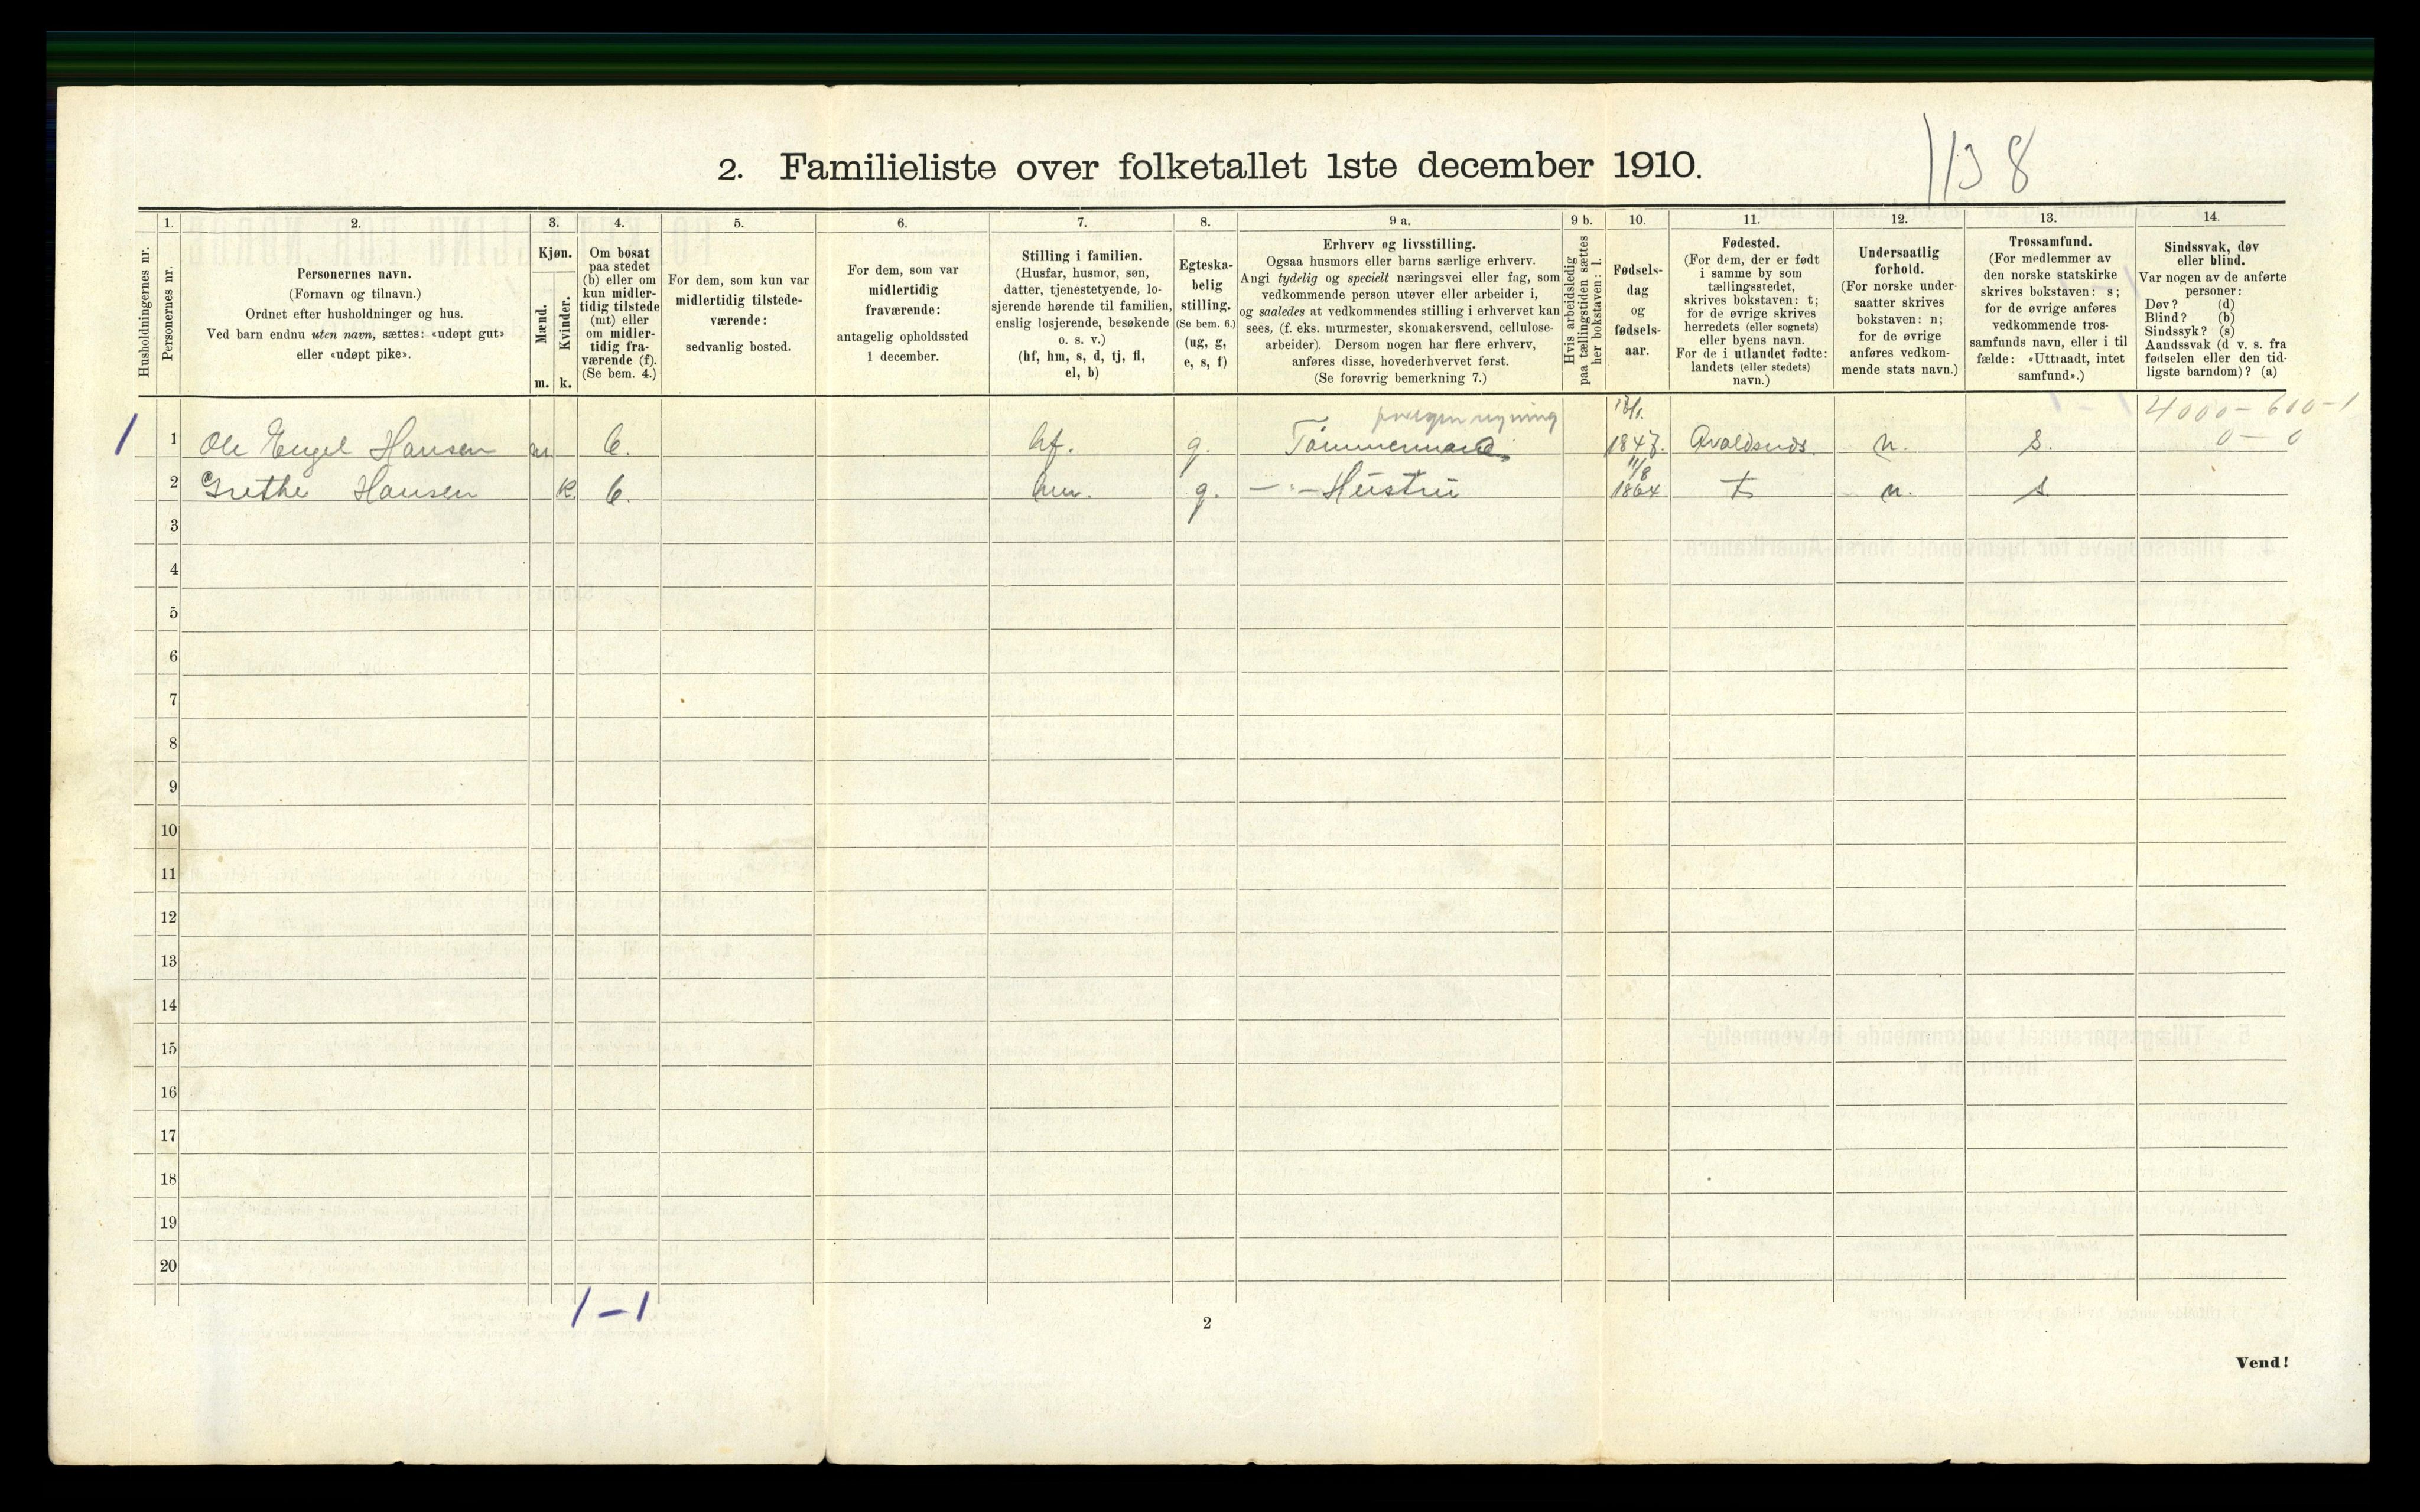 2. Familieliste over folketallet 1ste december 1910.
138
Husholdningernes nr.
1.
Personernes nr.
2.
Personernes navn.
(Fornavn og tilnavn.)
Ordnet efter husholdninger og hus.
Ved barn endnu uten navn, sættes: «udøpt gut»
eller «udøpt pike».
3.
Kjøn.
Mænd.
m.
Kvinder.
k.
4.
Om bosat
paa stedet
(b) eller om
kun midler-
tidig tilstede
(mt) eller
om midler-
tidig fra-
værende (f).
(Se bem. 4.)
5.
For dem, som kun var
midlertidig tilstede-
værende:
sedvanlig bosted.
6.
For dem, som var
midlertidig
fraværende:
antagelig opholdssted
1 december.
7.
Stilling i familien.
(Husfar, husmor, søn,
datter, tjenestetyende, lo-
sjerende hørende til familien,
enslig losjerende, besøkende
o. s. v.)
(hf, hm, s, d, tj, fl,
el, b)
8.
Egteska-
belig
stilling.
(Se bem. 6.)
(ug, g,
e, s, f)
9 a.
Erhverv og livsstilling.
Ogsaa husmors eller barns særlige erhverv.
Angi tydelig og specielt næringsvei eller fag, som
vedkommende person utøver eller arbeider i,
og saaledes at vedkommendes stilling i erhvervet kan
sees, (f. eks. murmester, skomakersvend, cellulose-
arbeider). Dersom nogen har flere erhverv,
anføres disse, hovederhvervet først.
(Se forøvrig bemerkning 7.)
9 b.
Hvis arbeidsledig
paa tællingstiden sættes
her bokstaven: l.
10.
Fødsels-
dag
og
fødsels-
aar.
11.
Fødested.
(For dem, der er født
i samme by som
tællingsstedet,
skrives bokstaven: t;
for de øvrige skrives
herredets (eller sognets)
eller byens navn.
For de i utlandet fødte:
landets (eller stedets)
navn.)
12.
Undersaatlig
forhold.
(For norske under-
saatter skrives
bokstaven: n;
for de øvrige
anføres vedkom-
mende stats navn.)
13.
Trossamfund.
(For medlemmer av
den norske statskirke
skrives bokstaven: s;
for de øvrige anføres
vedkommende tros-
samfunds navn, eller i til
fælde: «Uttraadt, intet
samfund».)
14.
Sindssvak, døv
eller blind.
Var nogen av de anførte
personer:
Døv? (d)
Blind? (b)
Sindssyk? (s)
Aandssvak (d v. s. fra
fødselen eller den tid-
ligste barndom)? (a)
4000-600-1
0-0
1 1 Ole Engel Hansen m b. hf. g. Tømmermand 1847. Avaldsnds. n. s.
2 Grethe Hansen k. b. hm. g. -"- Hustru 11/8 1864 t n. s.
3
4
5
6
7
8
9
10
11
12
13
14
15
16
17
18
19
20
1-1
2
Vend!